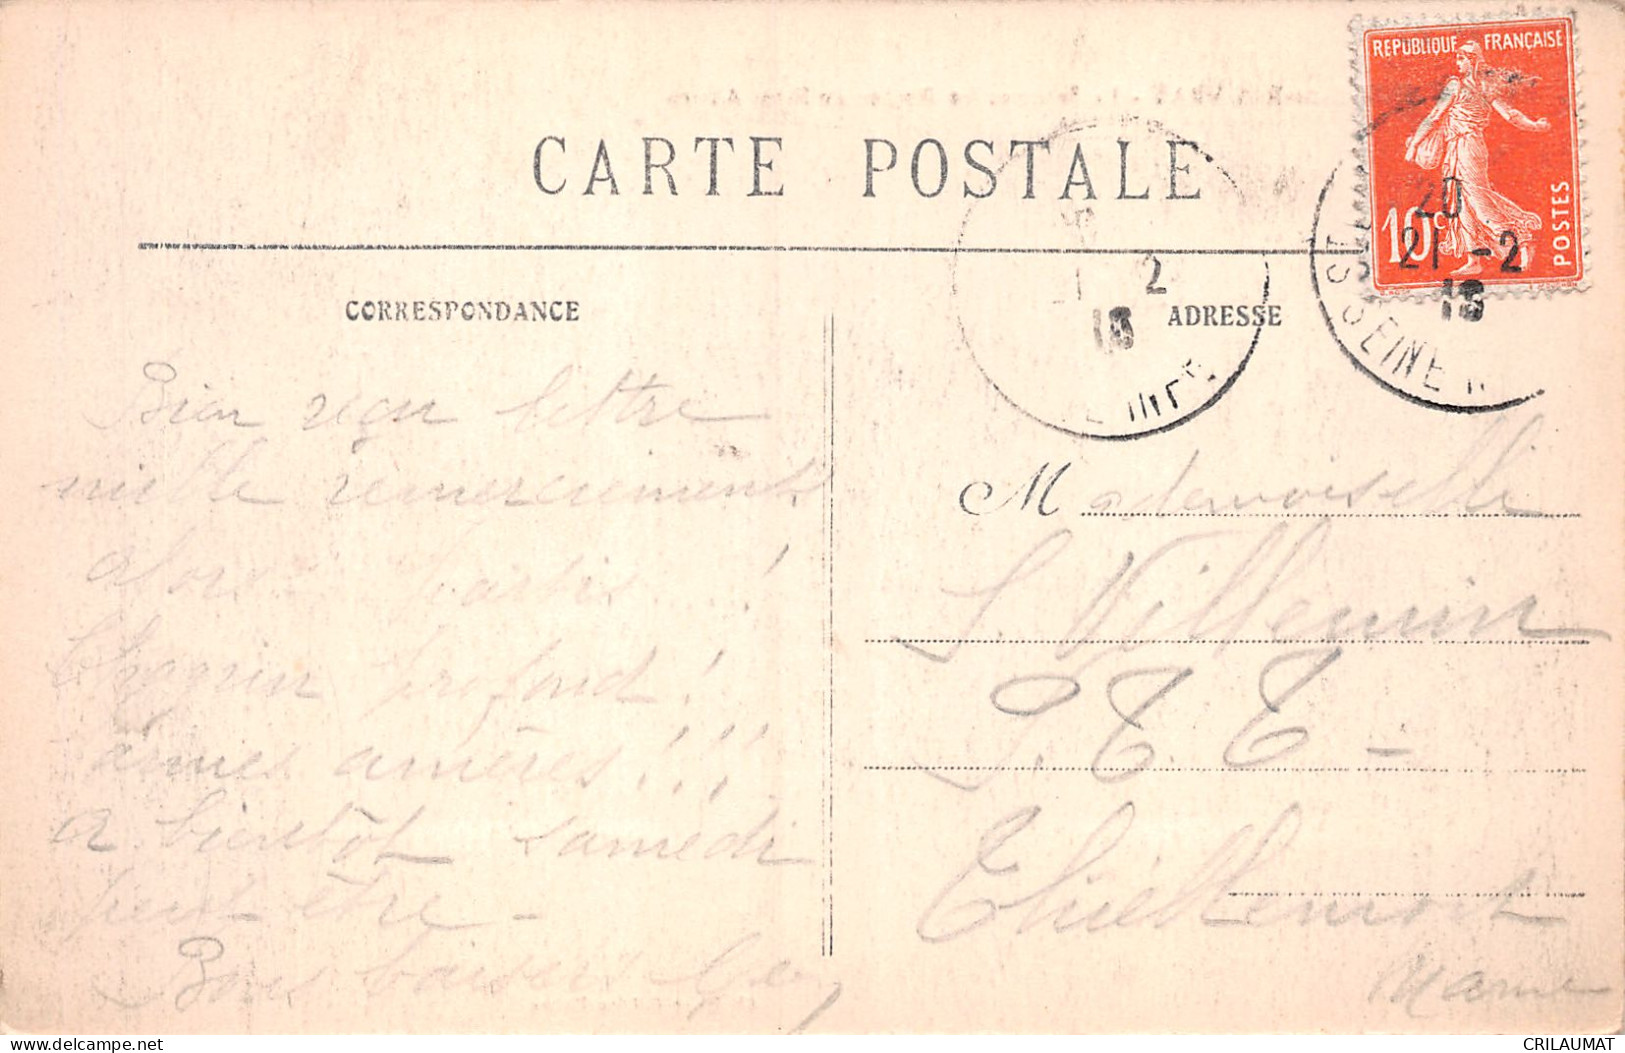 CARTE POSTALE
CORRESPONDANCE
ADRESSE
REPUBLIQUE FRANÇAISE
10c
POSTES
20
21 -2
18
ST SEINE
2
18
Bien reçu lettre
mille remerciements
alors partis..!
Chagrin profond!
larmes amères!!!
a bientôt samedi
peut-être -
Bons baisers
Mademoiselle
S. Villemin
P.T.T -
Thiéblemont
Marne
delcampe.net
CRILAUMAT